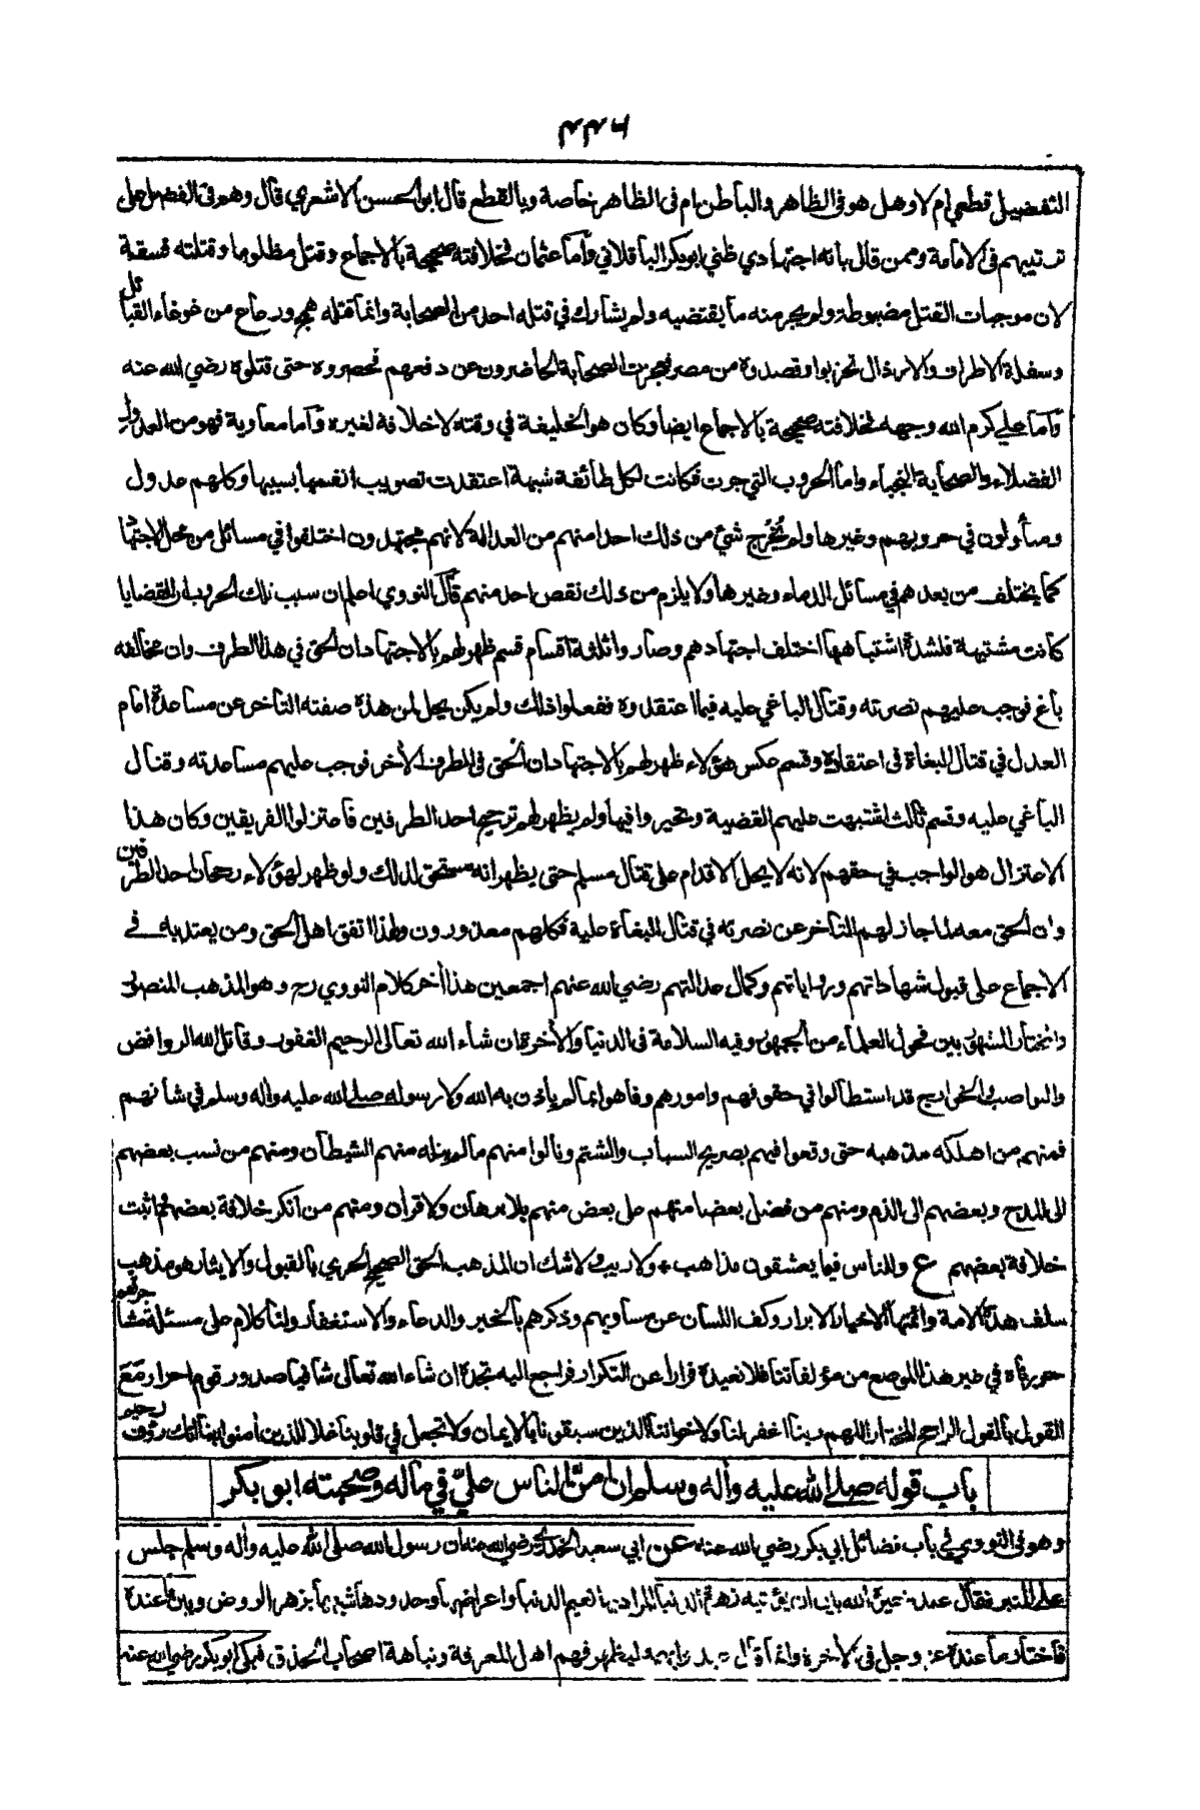 ٤٤٦
التفضيل قطعي ام لا وهل هو فى الظاهر والباطن ام فى الظاهر خاصة وبالقطع قال ابو الحسن الاشعري قال وهم فى الفضل على
ترتيبهم فى الامامة وممن قال بانه اجتهادي ظني ابو بكر الباقلاني وأما عثمان فخلافته صحيحة بالاجماع وقتل مظلوما وقتلته فسقة
لان موجبات القتل مضبوطة ولم يجر منه ما يقتضيه ولم يشارك في قتله احد من الصحابة وانما قتله همج ورعاع من غوغاء القبائل
وسفلة الاطراف والارذال تحزبوا وقصدوه من مصر فعجزت الصحابة الحاضرون عن دفعهم فحصروه حتى قتلوه رضي الله عنه
وأما علي كرم الله وجهه فخلافته صحيحة بالاجماع ايضا وكان هو الخليفة في وقته لا خلافة لغيره وأما معاوية فهو من العدول
الفضلاء والصحابة النجباء واما الحروب التي جرت فكانت لكل طائفة شبهة اعتقدت تصويب انفسها بسببها وكلهم عدول
ومتأولون في حروبهم وغيرها ولم يُخْرِج شئ من ذلك احدا منهم من العدالة لانهم مجتهدون اختلفوا في مسائل من محل الاجتهاد
كما يختلف من بعدهم في مسائل الدماء وغيرها ولا يلزم من ذلك نقص احد منهم قال النووي اعلم ان سبب تلك الحروب ان القضايا
كانت مشتبهة فلشدة اشتباهها اختلف اجتهادهم وصاروا ثلاثة اقسام قسم ظهر لهم بالاجتهاد ان الحق في هذا الطرف وان مخالفه
باغ فوجب عليهم نصرته وقتال الباغي عليه فيما اعتقدوه ففعلوا ذلك ولم يكن يحل لمن هذه صفته التأخر عن مساعدة امام
العدل في قتال البغاة فى اعتقاده وقسم عكس هؤلاء ظهر لهم بالاجتهاد ان الحق فى الطرف الأخر فوجب عليهم مساعدته وقتال
الباغي عليه وقسم ثالث اشتبهت عليهم القضية وتحيروا فيها ولم يظهر لهم ترجيح احد الطرفين فاعتزلوا الفريقين وكان هذا
الاعتزال هو الواجب في حقهم لانه لا يحل الاقدام على قتال مسلم حتى يظهر انه مستحق لذلك ولو ظهر لهؤلاء رجحان احد الطرفين
وان الحق معه لما جاز لهم التأخر عن نصرته في قتال البغاة عليه فكلهم معذورون ولهذا اتفق اهل الحق ومن يعتد به في
الاجماع على قبول شهاداتهم ورواياتهم وكمال عدالتهم رضي الله عنهم اجمعين هذا أخر كلام النووي رح وهو المذهب المنصور
والمختار المشهور بين فحول العلماء من الجمهور وفيه السلامة فى الدنيا والأخرة ان شاء الله تعالى الرحيم الغفور وقاتل الله الروافض
والنواصب والخوارج قد استطالوا في حقوقهم وامورهم وفاهوا بما لم يأذن به الله ولا رسوله صلى الله عليه واله وسلم في شأنهم
فمنهم من اهلكه مذهبه حتى وقعوا فيهم بصريح السباب والشتم ونالوا منهم ما لم ينله منهم الشيطان ومنهم من نسب بعضهم
الى المدح وبعضهم الى الذم ومنهم من فضل بعضا منهم على بعض منهم بلا برهان ولا قران ومنهم من انكر خلافة بعضهم واثبت
خلافة بعضهم ع وللناس فيما يعشقون مذاهب ٭ ولا ريب ولا شك ان المذهب الحق الصحيح الحري بالقبول والايثار هو مذهب
سلف هذه الامة وائمتها الاخيار الابرار وكف اللسان عن مساويهم وذكرهم بالخير والدعاء والاستغفار ولنا كلام على مسئلة مشاجرتهم
حررناه في غير هذا الموضع من مؤلفاتنا فلا نعيده فرارا عن التكرار فراجع اليه تجده ان شاء الله تعالى شافيا صدور قوم احرار مَعَ
القول بالقول الراجح المختار اللهم ربنا اغفر لنا ولاخواننا الذين سبقونا بالايمان ولا تجعل في قلوبنا غلا للذين أمنوا ربنا انك رؤف رحيم
باب قوله صلى الله عليه وأله وسلم ان امنّ الناس عليّ في ماله وصحبته ابو بكر
وهو فى النووي في باب فضائل ابي بكر رضي الله عنه عن ابي سعيد الخدري رضي الله عنه ان رسول الله صلى الله عليه وأله وسلم جلس
على المنبر فقال عبد خيره الله بين ان يؤتيه زهرة الدنيا المراد بها نعيم الدنيا واعراضها وحدودها شبهها بزهر الروض وبين ما عنده
فاختار ما عنده عز وجل فى الاخرة وانما قال عبد وابهمه ليظهر فهم اهل المعرفة ونباهة اصحاب الحذق فبكى ابو بكر رضي الله عنه